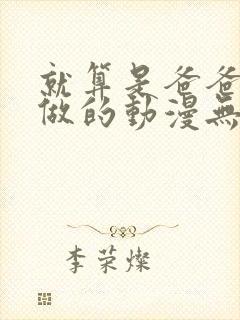 就算是爸爸
做的動漫無
李荣燦